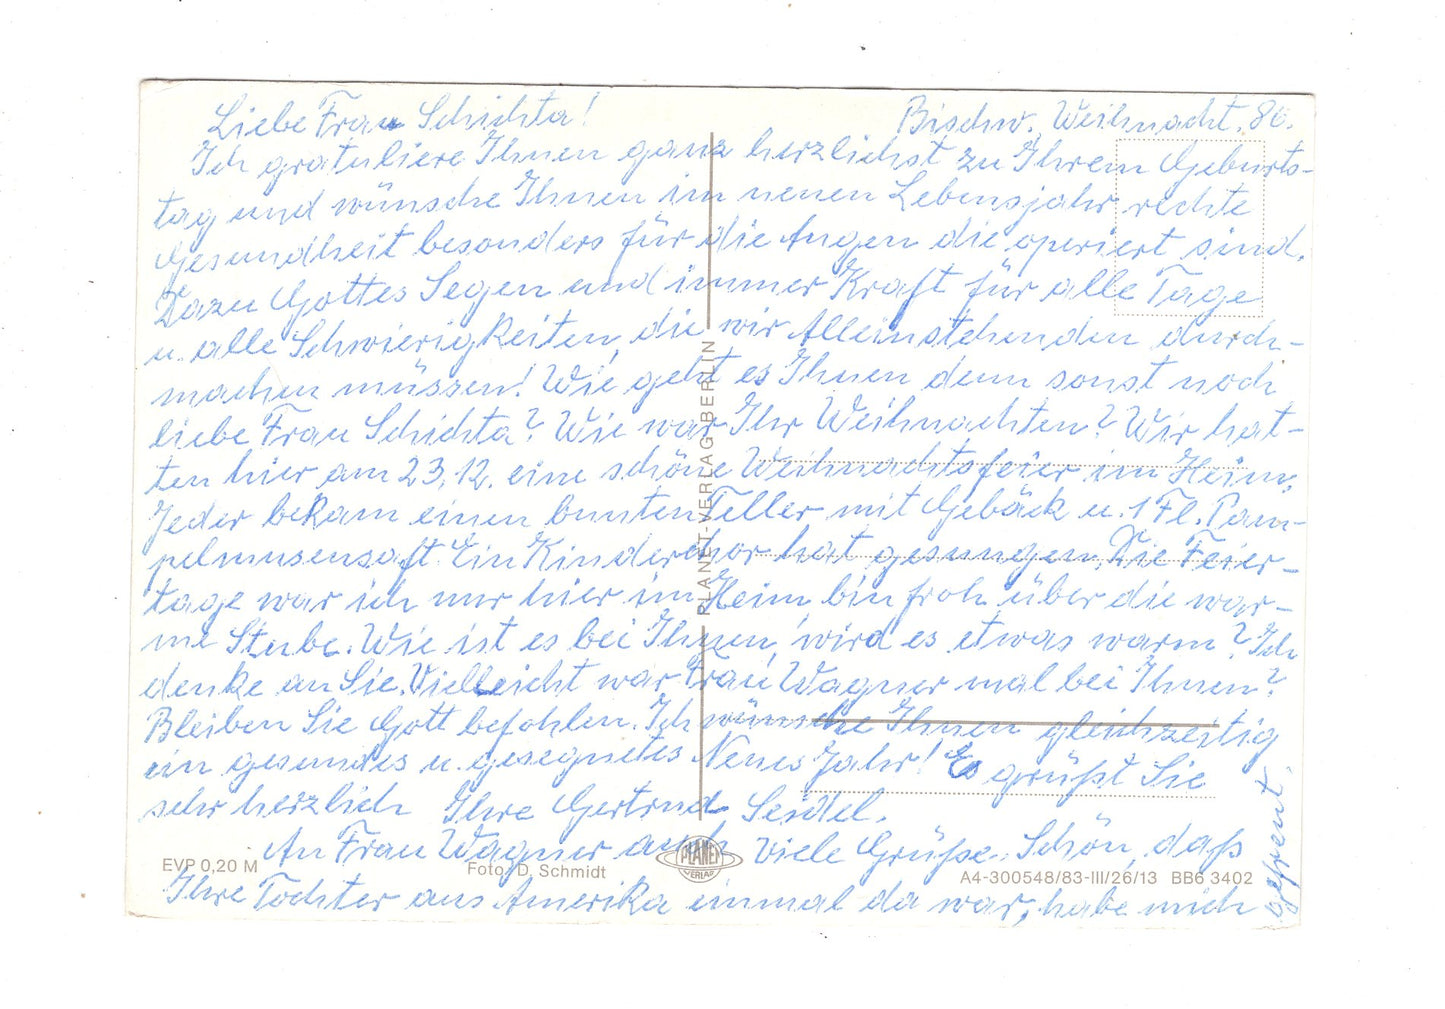 Liebe Frau Schichta! Bischw. Weihnacht. 86.
Ich gratuliere Ihnen ganz herzlichst zu Ihrem Geburts-
tag und wünsche Ihnen im neuen Lebensjahr rechte
Gesundheit besonders für die Augen die operiert sind.
Dazu Gottes Segen und immer Kraft für alle Tage
u. alle Schwierigkeiten, die wir Alleinstehenden durch-
machen müssen! Wie geht es Ihnen denn sonst noch
liebe Frau Schichta? Wie war Ihr Weihnachten? Wir hat-
ten hier am 23.12. eine schöne Weihnachtsfeier im Heim.
Jeder bekam einen bunten Teller mit Gebäck u. 1 Fl. Pam-
pelmusensaft. Ein Kinderchor hat gesungen. Die Feier-
tage war ich nur hier im Heim bin froh über die war-
me Stube. Wie ist es bei Ihnen, wird es etwas warm? Ich
denke an Sie. Vielleicht war Frau Wagner mal bei Ihnen?
Bleiben Sie Gott befohlen. Ich wünsche Ihnen gleichzeitig
ein gesundes u. gesegnetes Neues Jahr! Es grüßt Sie
sehr herzlich Ihre Gertrud Seidel.
An Frau Wagner auch viele Grüße. Schön, daß
Ihre Tochter aus Amerika einmal da war, habe mich
gefreut
PLANET-VERLAG BERLIN
EVP 0,20 M
Foto: D. Schmidt
PLANET
VERLAG
A4-300548/83-III/26/13 BB6 3402